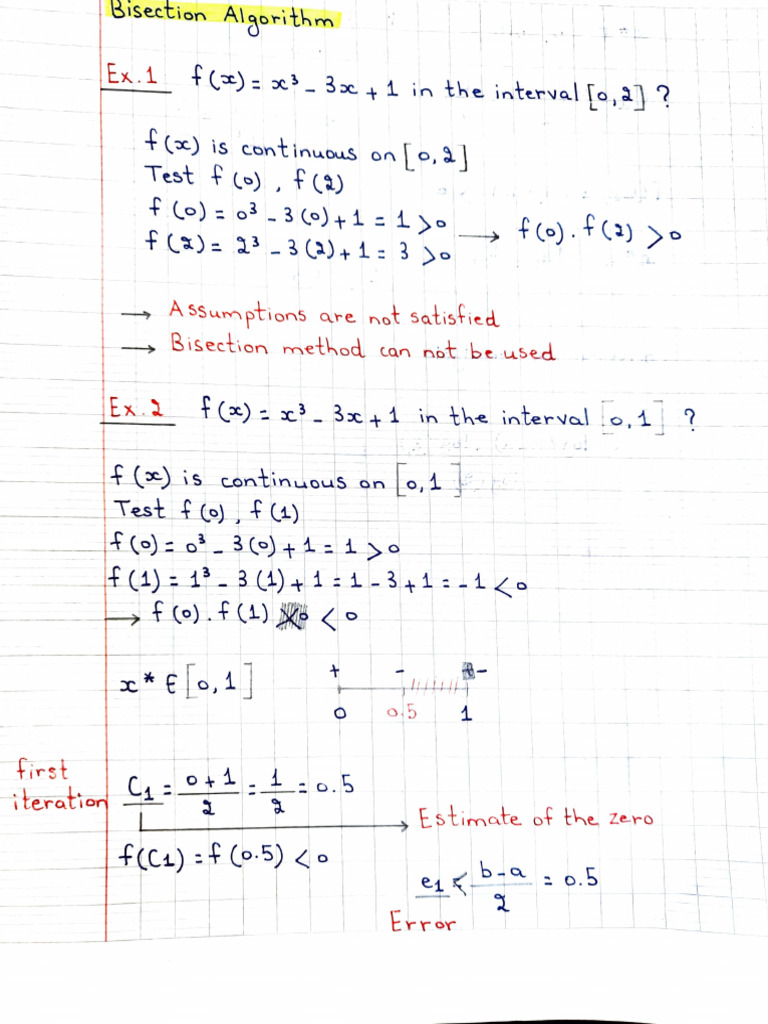 Bisection Algorithm
Ex.1 f(x) = x³ - 3x + 1 in the interval [0,2] ?
f(x) is continuous on [0,2]
Test f(0), f(2)
f(0) = 0³ - 3(0) + 1 = 1 > 0
f(2) = 2³ - 3(2) + 1 = 3 > 0
→ f(0).f(2) > 0
→ Assumptions are not satisfied
→ Bisection method can not be used
Ex.2 f(x) = x³ - 3x + 1 in the interval [0,1] ?
f(x) is continuous on [0,1]
Test f(0), f(1)
f(0) = 0³ - 3(0) + 1 = 1 > 0
f(1) = 1³ - 3(1) + 1 = 1 - 3 + 1 = -1 < 0
→ f(0).f(1) < 0
x* ∈ [0,1]
+ - -
0 0.5 1
first
iteration
C1 = 0+1/2 = 1/2 = 0.5
→ Estimate of the zero
f(C1) = f(0.5) < 0
e1 < b-a/2 = 0.5
Error